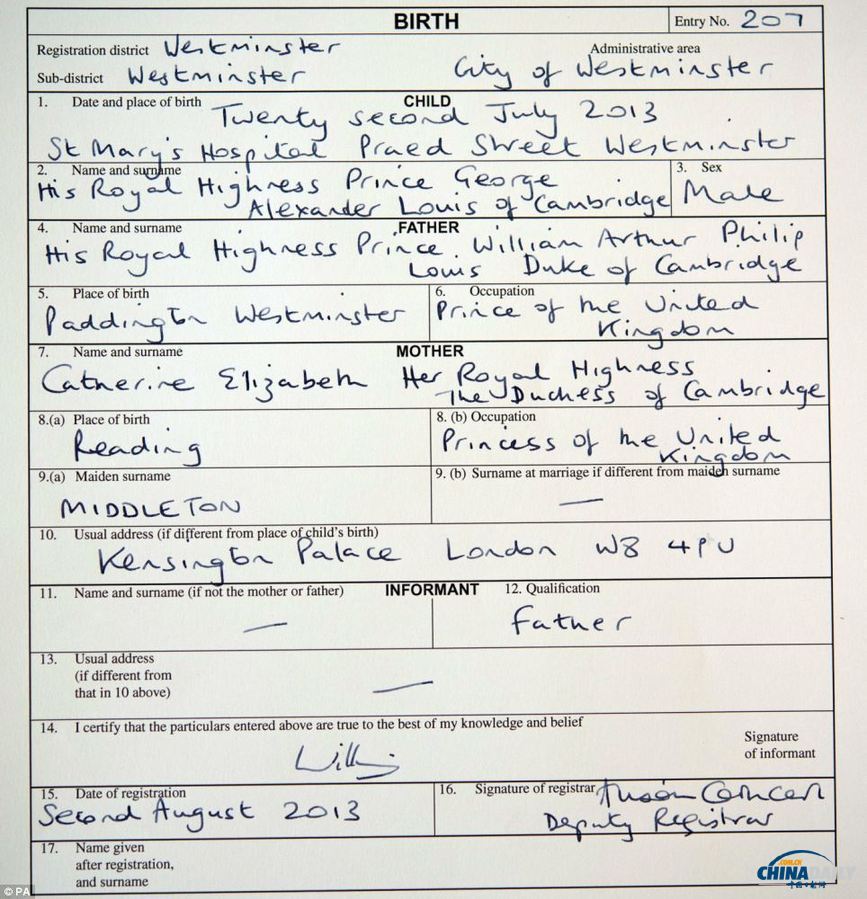 BIRTH
Entry No. 207
Registration district Westminster
Administrative area
Sub-district Westminster
City of Westminster
1. Date and place of birth
CHILD
Twenty second July 2013
St Mary's Hospital Praed Street Westminster
2. Name and surname
3. Sex
His Royal Highness Prince George
Alexander Louis of Cambridge
Male
4. Name and surname
FATHER
His Royal Highness Prince William Arthur Philip
Louis Duke of Cambridge
5. Place of birth
6. Occupation
Paddington Westminster
Prince of the United
Kingdom
7. Name and surname
MOTHER
Catherine Elizabeth Her Royal Highness
The Duchess of Cambridge
8.(a) Place of birth
8. (b) Occupation
Reading
Princess of the United
Kingdom
9.(a) Maiden surname
9. (b) Surname at marriage if different from maiden surname
MIDDLETON
—
10. Usual address (if different from place of child's birth)
Kensington Palace London W8 4PU
11. Name and surname (if not the mother or father)
INFORMANT
12. Qualification
—
Father
13. Usual address
(if different from
that in 10 above)
—
14. I certify that the particulars entered above are true to the best of my knowledge and belief
Signature
of informant
15. Date of registration
16. Signature of registrar
Second August 2013
Deputy Registrar
17. Name given
after registration,
and surname
© PA
.COM.CN
CHINADAILY
中国日报网